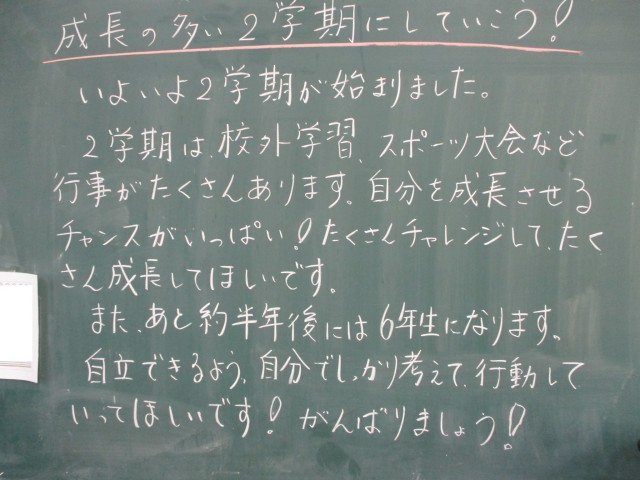 成長の多い2学期にしていこう!
いよいよ2学期が始まりました。
2学期は、校外学習、スポーツ大会など
行事がたくさんあります。自分を成長させる
チャンスがいっぱい!たくさんチャレンジして、たく
さん成長してほしいです。
また、あと約半年後には6年生になります。
自立できるよう、自分でしっかり考えて、行動して
いってほしいです!がんばりましょう!